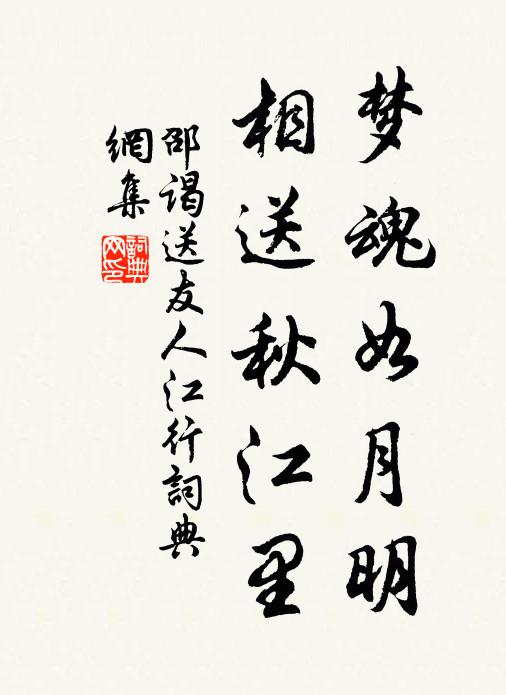 梦魂如月明
相送秋江里
邵谒送友人江行詞典
網集
詞典网印